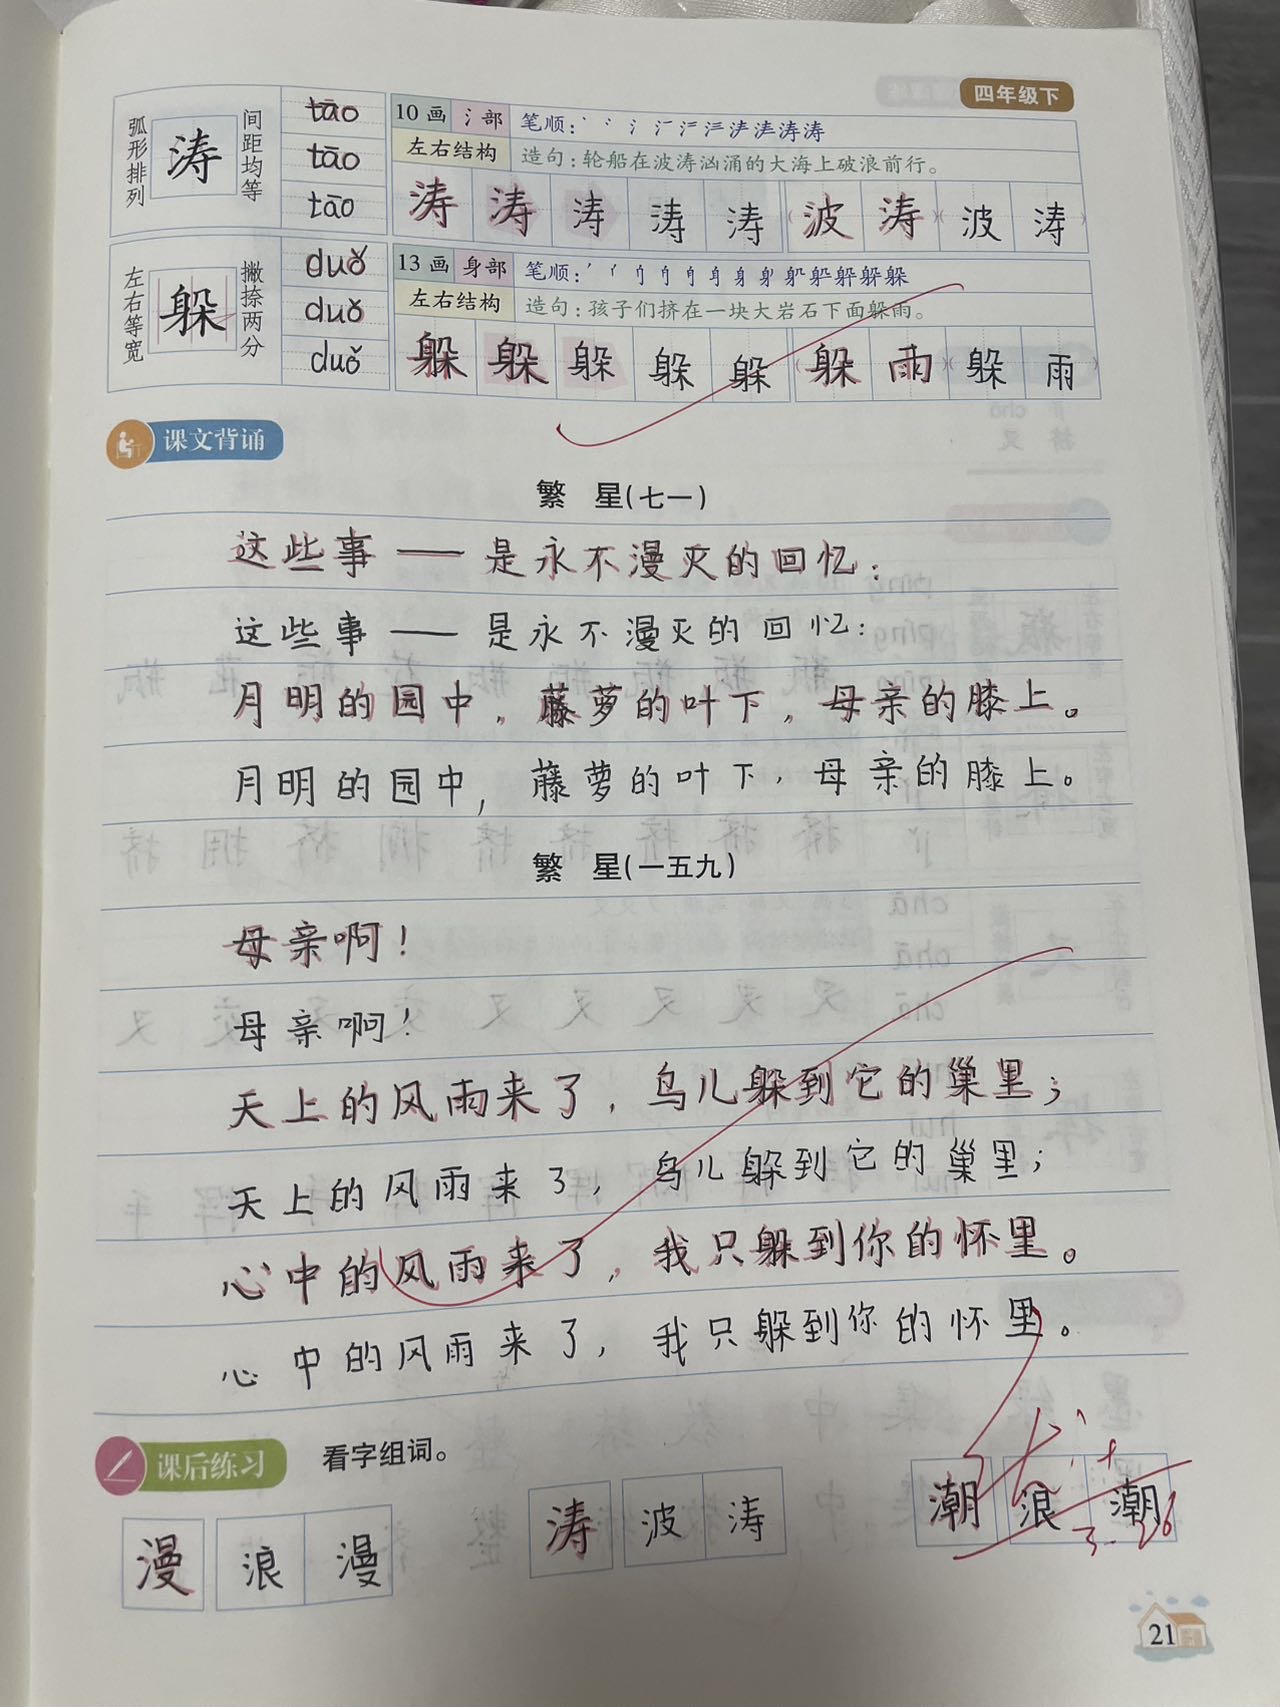 四年级下
弧形排列 涛 间距均等
tāo
tāo
tāo
10画 氵部 笔顺:
左右结构 造句:轮船在波涛汹涌的大海上破浪前行。
涛 涛 涛 涛 涛 (波 涛)(波 涛)
左右等宽 躲 撇捺两分
duǒ
duǒ
duǒ
13画 身部 笔顺:
左右结构 造句:孩子们挤在一块大岩石下面躲雨。
躲 躲 躲 躲 躲 (躲 雨)(躲 雨)
课文背诵
繁 星(七一)
这些事——是永不漫灭的回忆:
这些事——是永不漫灭的回忆:
月明的园中,藤萝的叶下,母亲的膝上。
月明的园中,藤萝的叶下,母亲的膝上。
繁 星(一五九)
母亲啊!
母亲啊!
天上的风雨来了,鸟儿躲到它的巢里;
天上的风雨来了,鸟儿躲到它的巢里;
心中的风雨来了,我只躲到你的怀里。
心中的风雨来了,我只躲到你的怀里。
课后练习 看字组词。
漫 浪漫 涛 波涛 潮 浪潮
3.26
21